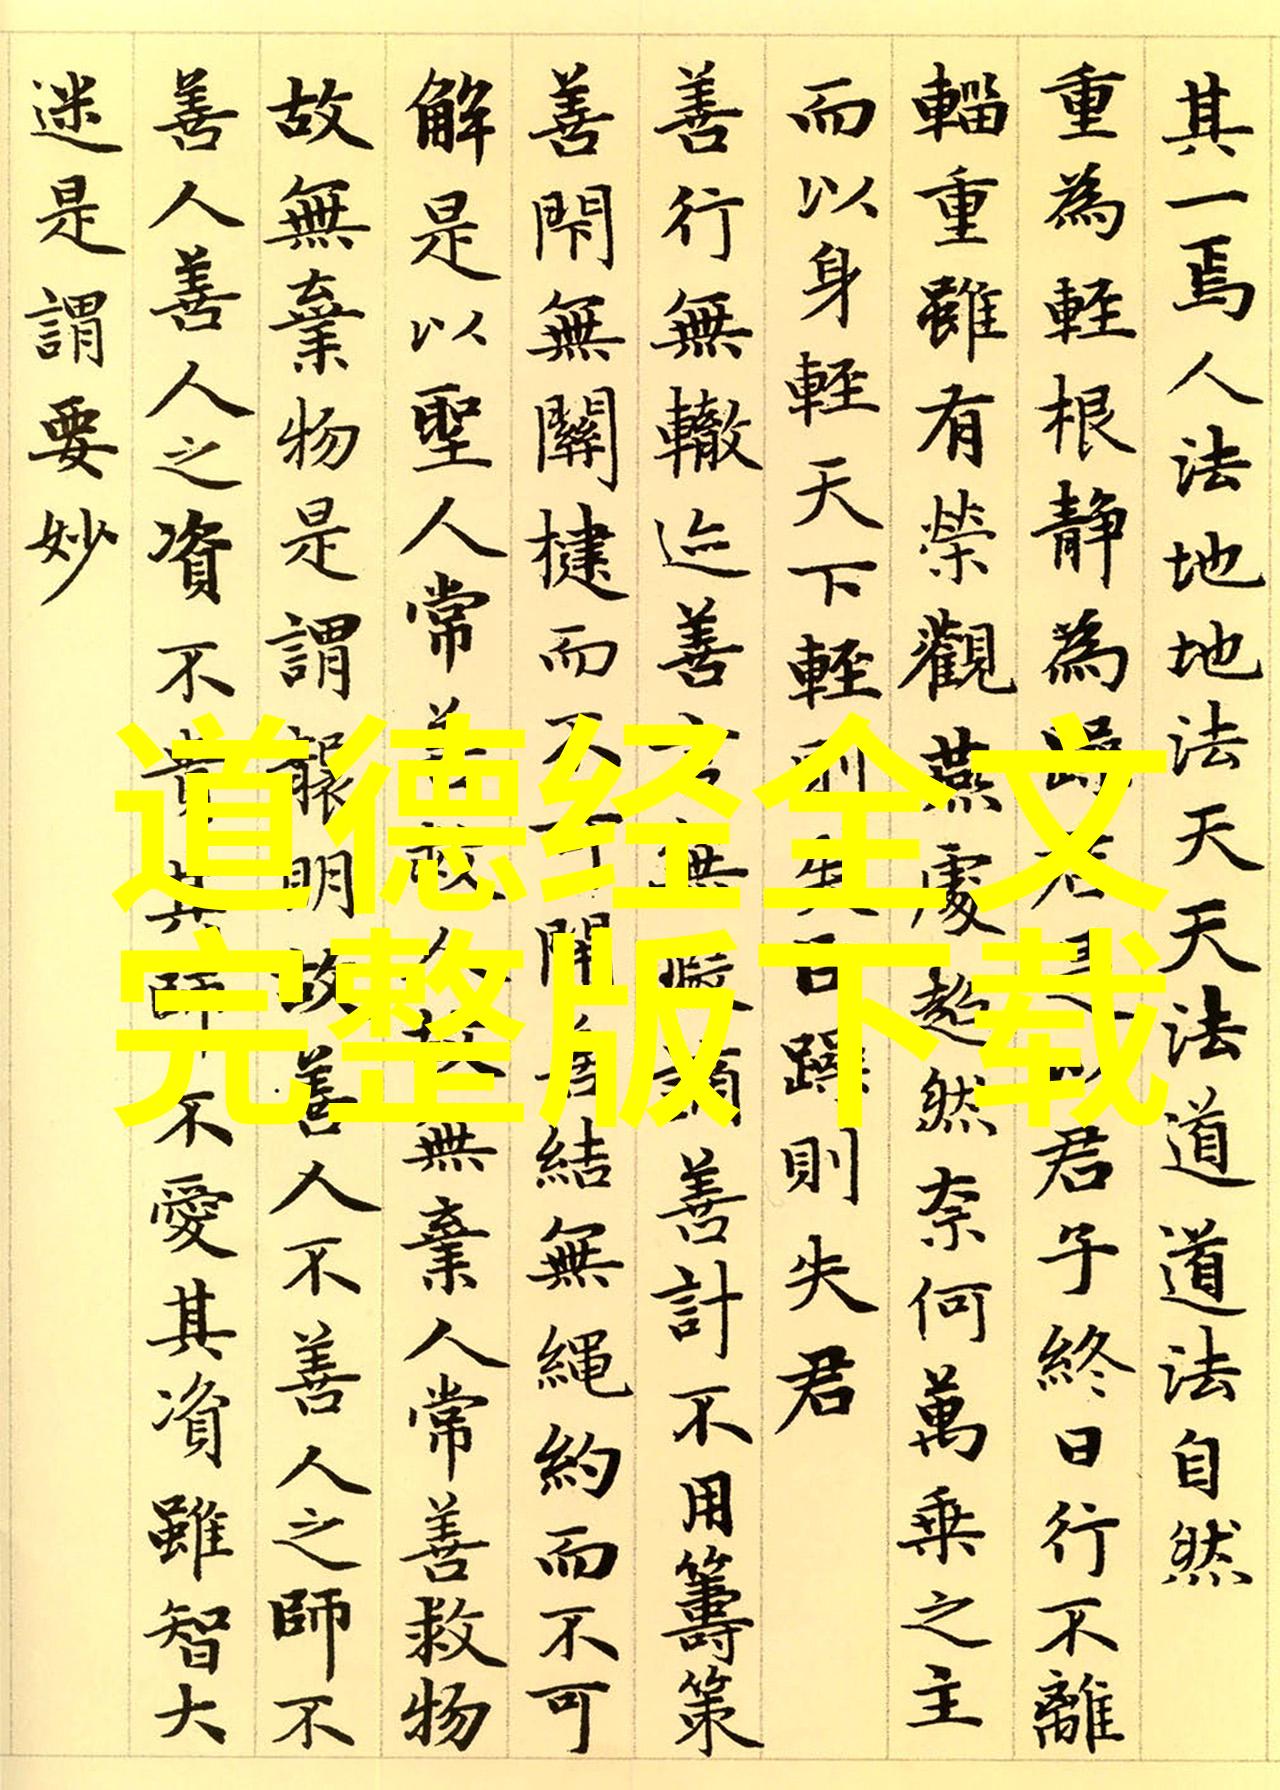 其一焉人法地地法天天法道道法自然
重為輕根静為躁君是以君子終日行不離
輜重雖有榮觀燕處超然奈何萬乗之主
而以身輕天下輕則失臣躁則失君
善行無轍迹善言無瑕謫善計不用籌策
善閇無關楗而不可開善結無繩約而不可
解是以聖人常善救人故無棄人常善救物
故無棄物是謂襲明故善人不善人之師不
善人善人之資不貴其師不愛其資雖智大
迷是謂要妙
道德经全文
完整版下载